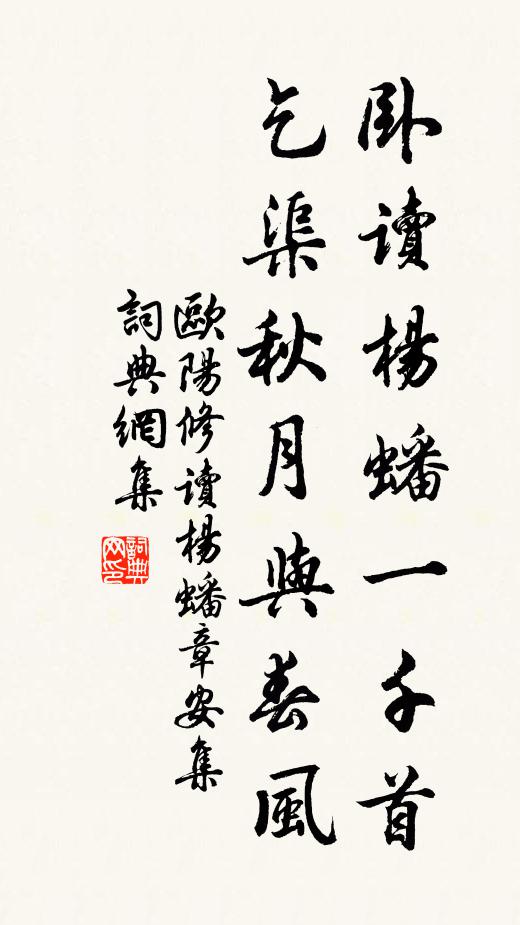 卧讀楊蟠一千首
乞渠秋月與春風
歐陽修讀楊蟠章安集
詞典網集
詞典网印